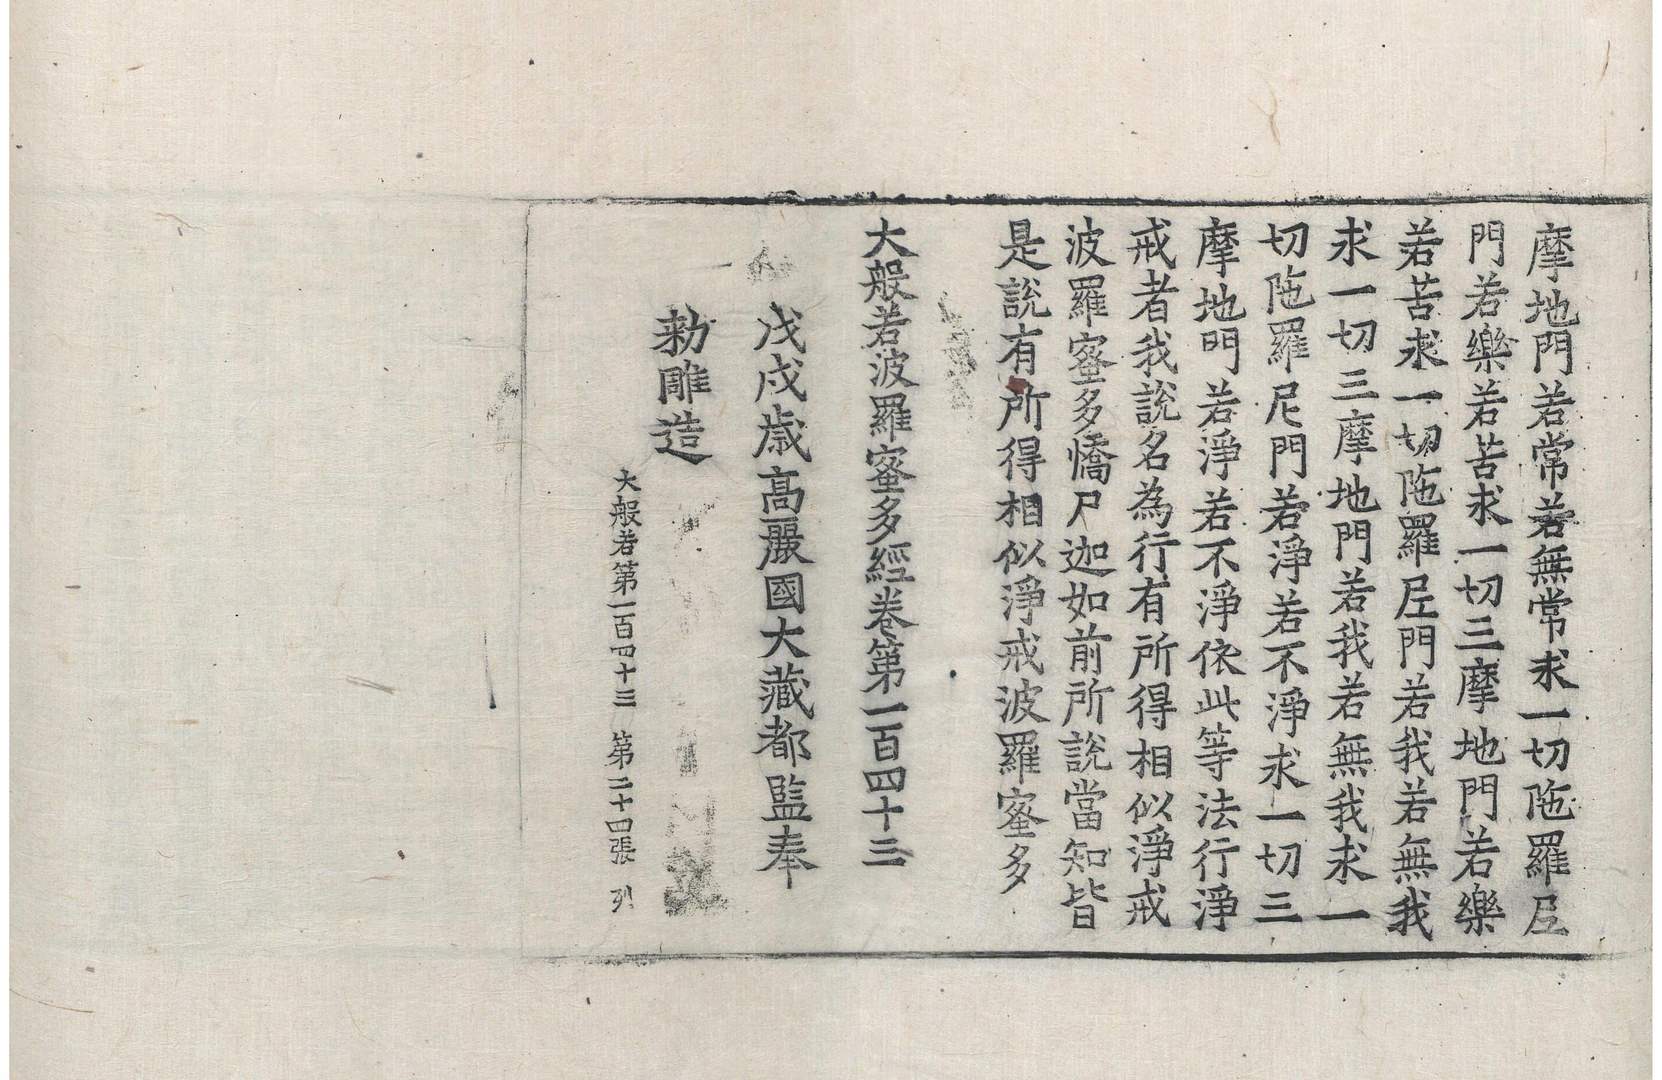 摩地門若常若無常求一切陁羅尼
門若樂若苦求一切三摩地門若樂
若苦求一切陁羅尼門若我若無我
求一切三摩地門若我若無我求一
切陁羅尼門若淨若不淨求一切三
摩地門若淨若不淨依此等法行淨
戒者我說名為行有所得相似淨戒
波羅蜜多憍尸迦如前所說當知皆
是說有所得相似淨戒波羅蜜多
大般若波羅蜜多經卷第一百四十三
戊戌歲高麗國大藏都監奉
勅雕造
大般若第一百四十三 第二十四張 列